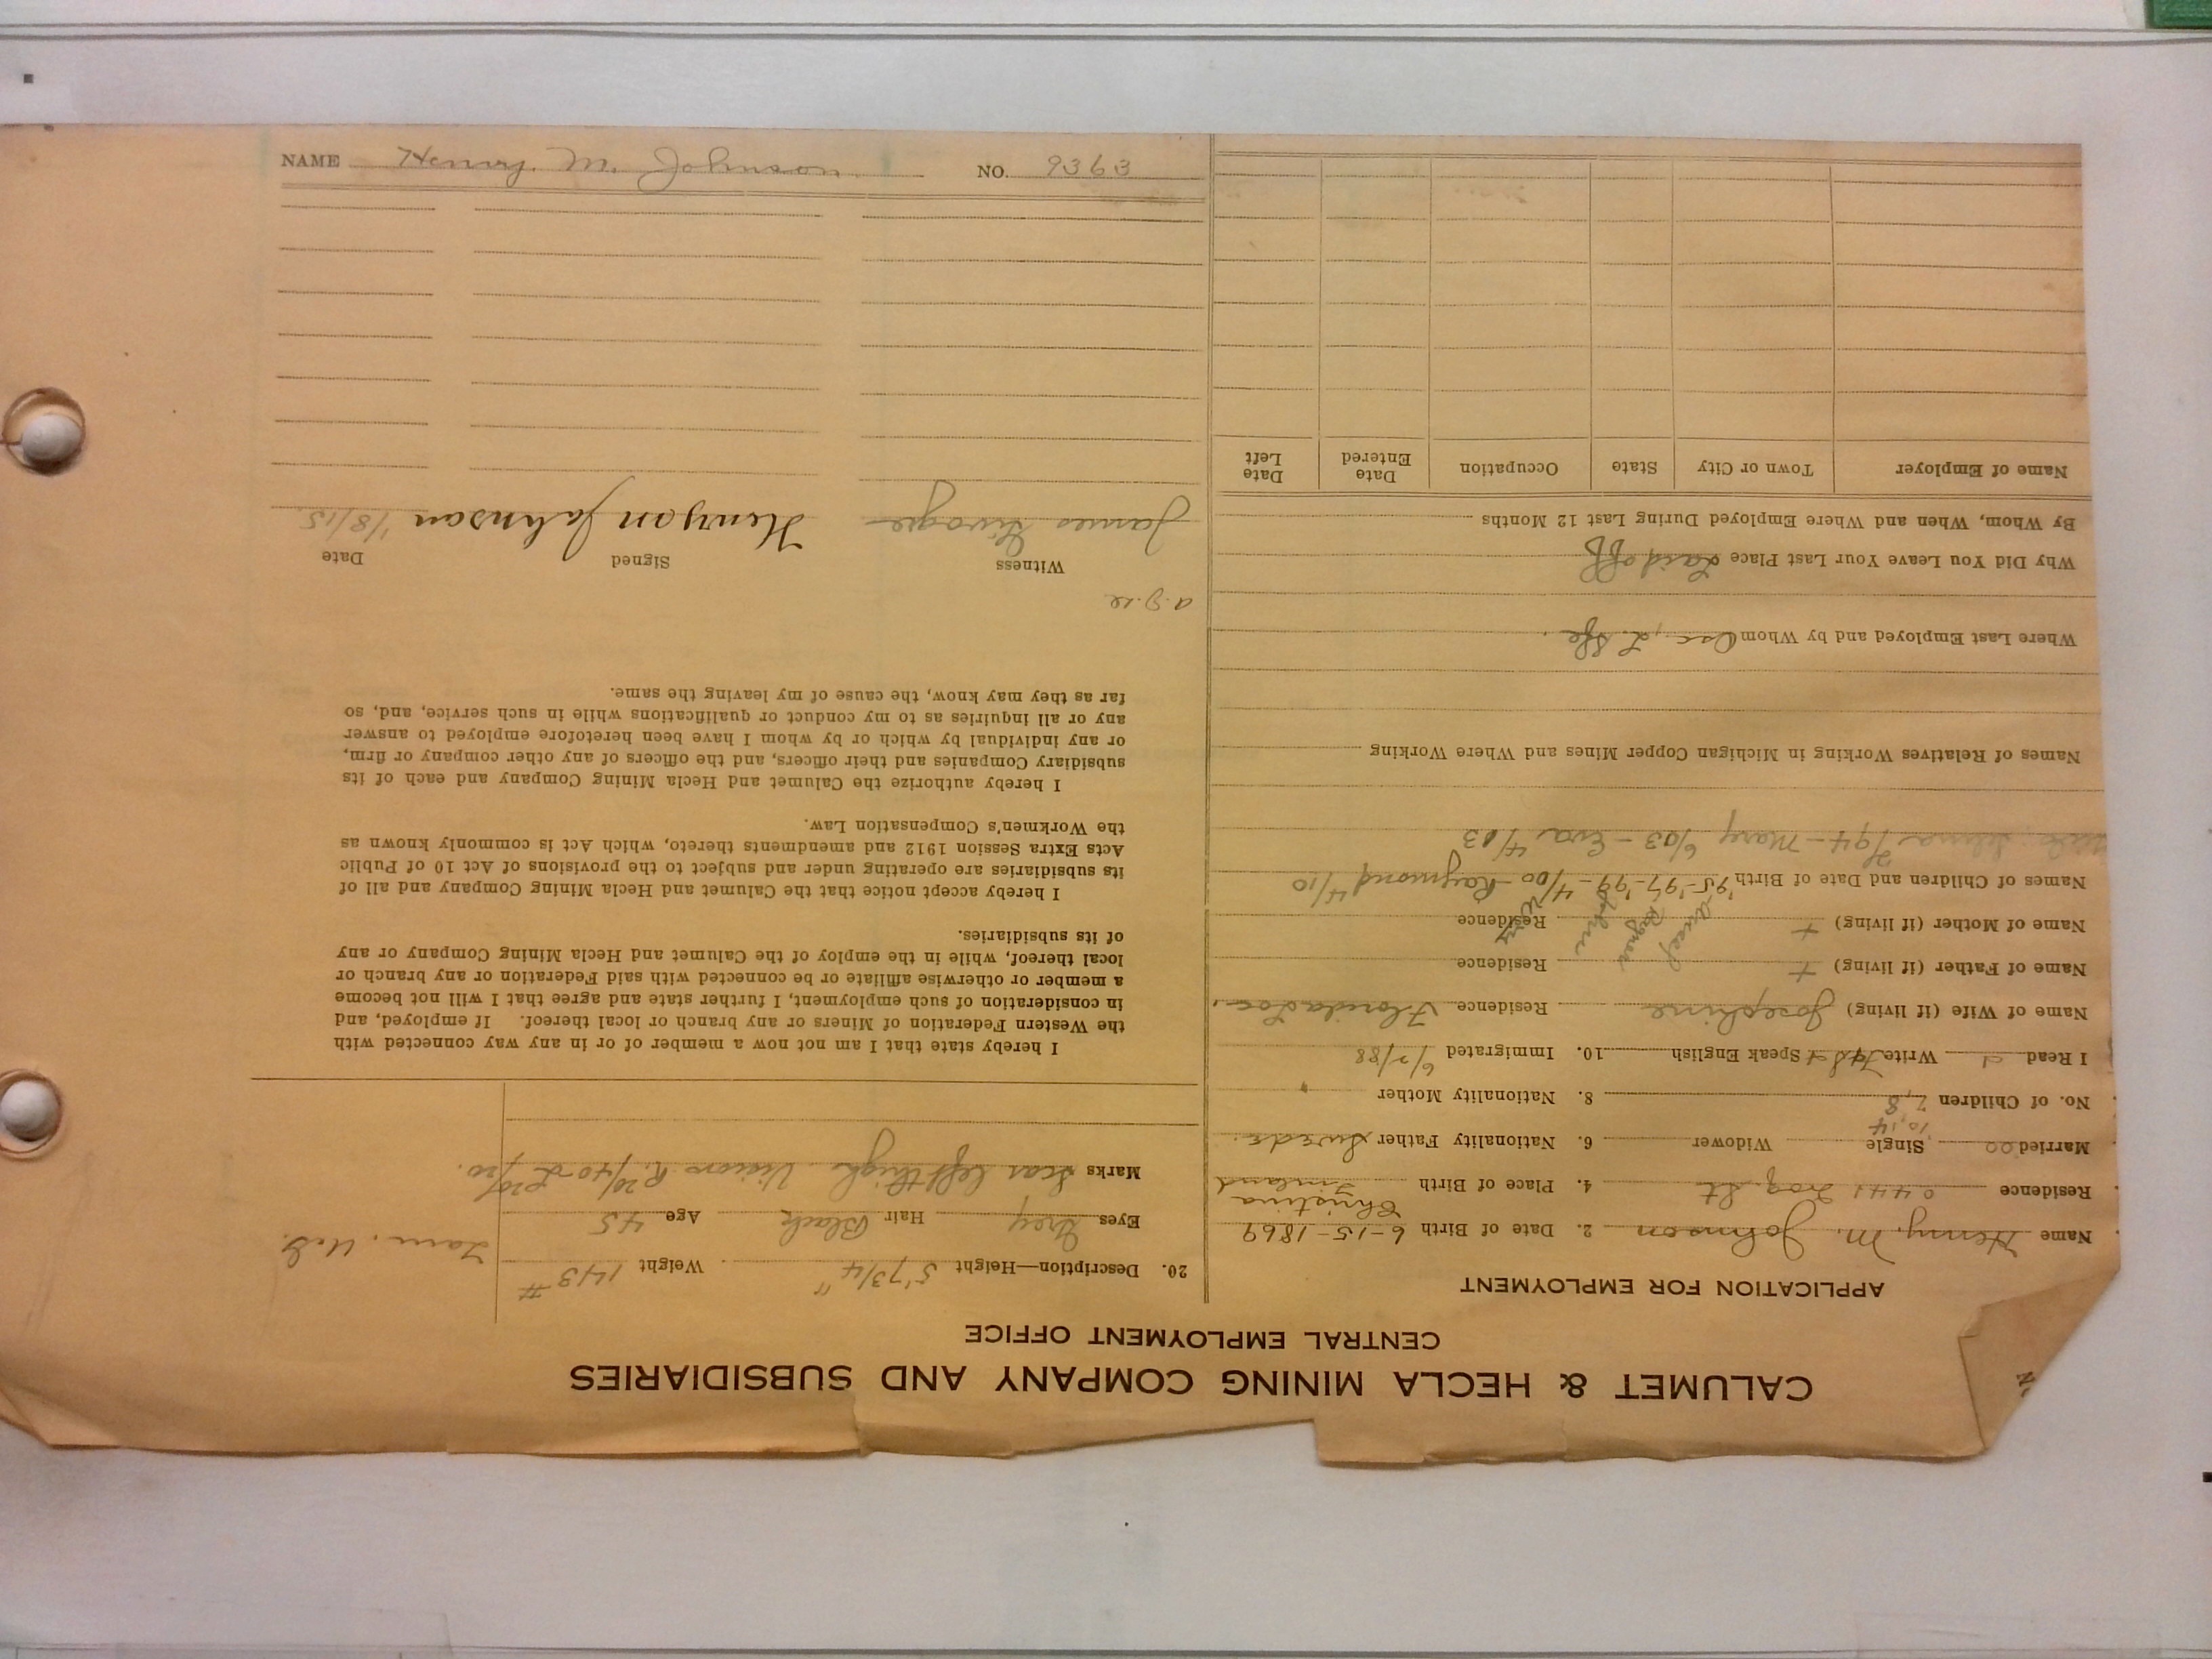 CALUMET & HECLA MINING COMPANY AND SUBSIDIARIES
CENTRAL EMPLOYMENT OFFICE
APPLICATION FOR EMPLOYMENT
Name Henry M. Johnson 2. Date of Birth 6-15-1869
Christina
Residence 0441 St 4. Place of Birth Finland
Married Single Widower 6. Nationality Father Swede.
10,14
No. of Children 7,8 8. Nationality Mother "
I Read Write Speak English 10. Immigrated 6/2/88
Name of Wife (if living) Josephine Residence Florida Loc.
Name of Father (if living) + Residence
Name of Mother (if living) + Residence
Names of Children and Date of Birth '95-'97-'99-4/00 Raymond 4/10
Selma /94 - Mary 6/03 - Eva 4/03
Names of Relatives Working in Michigan Copper Mines and Where Working
Where Last Employed and by Whom
Why Did You Leave Your Last Place Laid off
By Whom, When and Where Employed During Last 12 Months
Name of Employer Town or City State Occupation Date Entered Date Left
20. Description—Height 5'7 3/4" Weight 143 #
Eyes Grey Hair Black Age 45
Marks Scar left thigh. Vision R. 20/40 L 20/20.
I hereby state that I am not now a member of or in any way connected with
the Western Federation of Miners or any branch or local thereof. If employed, and
in consideration of such employment, I further state and agree that I will not become
a member or otherwise affiliate or be connected with said Federation or any branch or
local thereof, while in the employ of the Calumet and Hecla Mining Company or any
of its subsidiaries.
I hereby accept notice that the Calumet and Hecla Mining Company and all of
its subsidiaries are operating under and subject to the provisions of Act 10 of Public
Acts Extra Session 1912 and amendments thereto, which Act is commonly known as
the Workmen's Compensation Law.
I hereby authorize the Calumet and Hecla Mining Company and each of its
subsidiary Companies and their officers, and the officers of any other company or firm,
or any individual by which or by whom I have been heretofore employed to answer
any or all inquiries as to my conduct or qualifications while in such service, and, so
far as they may know, the cause of my leaving the same.
Witness Signed Date
James Henryan Johnson 1/8/15
NAME Henry. M. Johnson. NO. 9363